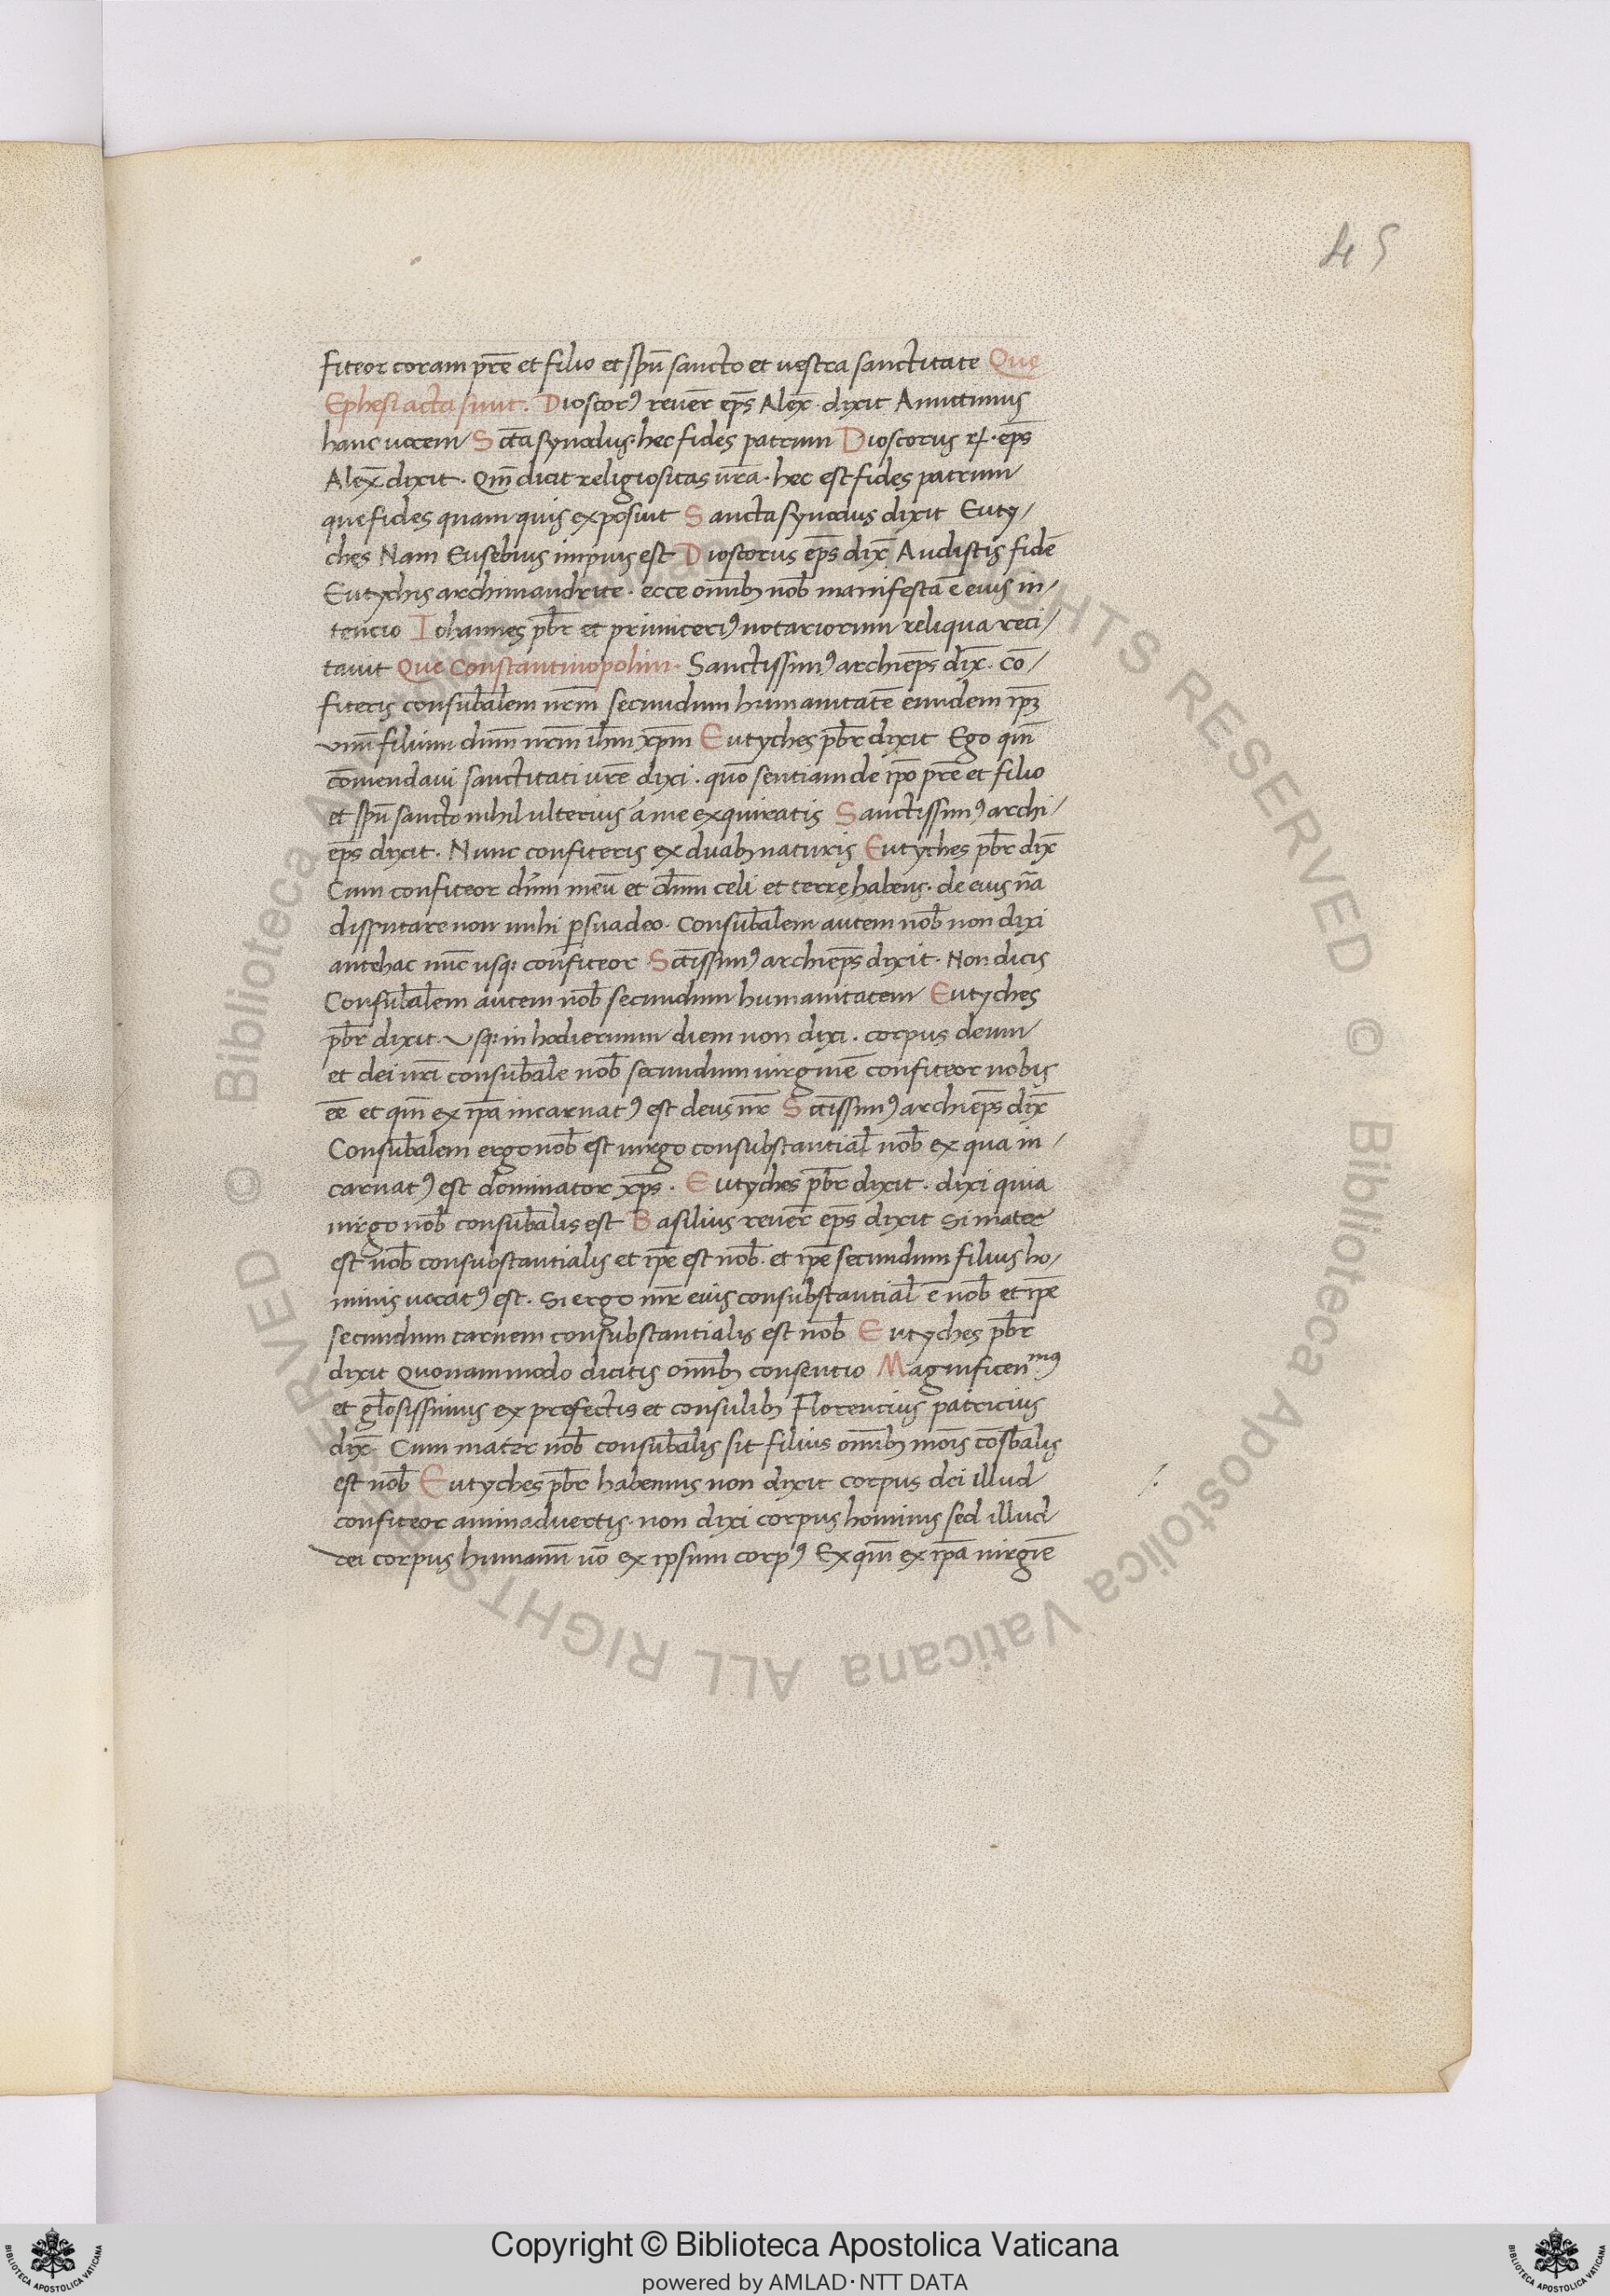 45
fiteor coram pr̄e et filio et sp̄u sancto et vestra sanctitate Quę
Ephesi acta sunt. Dioscorꝰ reuer̄ ep̄s Alex̄. dixit Annuimus
hanc uocem Sc̄ta synodus. hec fides patrum Dioscorus ep̄s
Alex̄ dixit. Qm̄ dicit religiositas ur̄a. hec est fides patrum
que fides quam quis exposuit Sancta synodus dixit Euty/
ches Nam Eusebius impius est Dioscorus ep̄s dix̄ Audistis fidē
Eutychis archimandrite. ecce omībꝫ nob̄ manifesta ē eius in/
tencio Iohannes pb̄r et primiceriꝰ notariorum reliqua reci/
tauit Que Constantinopolim. Sanctissimꝰ archiep̄s dix̄. cō/
fiteris consub̄alem nr̄m secundum humanitatē eundem ip̄ꝫ
unū filium dnm̄ nr̄m ih̄m xp̄m Eutyches pb̄r dixit Ego qm̄
cōmendaui sanctitati ur̄e dixi. quō sentiam de ip̄o pr̄e et filio
et sp̄u sancto nihil ulterius a me exquiratis Sanctissimꝰ archi/
ep̄s dixit. Nunc confiteris ex duabꝫ naturis Eutyches pb̄r dix̄
Cum confiteor dn̄m meū et dn̄m celi et terrę habens. de eius nā
disputare non mihi ꝑsuadeo. Consub̄alem autem nob̄ non dixi
antehac nūc usqꝫ confiteor Sc̄tissimꝰ archiep̄s dixit. Non dicis
Consub̄alem autem nob̄ secundum humanitatem Eutyches
pb̄r dixit. usqꝫ in hodiernum diem non dixi. corpus deum
et dei nr̄i consub̄ale nob̄ secundum uirginē confiteor nobis
eē et qm̄ ex ip̄a incarnatꝰ est deus nr̄ Sc̄tissimꝰ archiep̄s dix̄
Consub̄alem ergo nob̄ est uirgo consubstantial̄ nob̄ ex qua in/
carnatꝰ est dominator xp̄s. Eutyches pb̄r dixit. dixi quia
uirgo nob̄ consub̄alis est Basilius reuer̄ ep̄s dixit Si mater
est nob̄ consubstantialis et ip̄e est nob̄. et ip̄e secundum filius ho/
minis uocatꝰ est. Si ergo mr̄ eius consubstantial̄ ē nob̄ et ip̄e
secundum carnem consubstantialis est nob̄ Eutyches pb̄r
dixit Quonammodo dicitis omībꝫ consentio Magnificenmꝰ
et gl̄osissimus ex prefectis et consulibꝫ Florencius patricius
dix̄. Cum mater nob̄ consub̄alis sit filius omībꝫ mōis cōsb̄alis
est nob̄ Eutyches pb̄r habemus non dixit corpus dei illud
confiteor animaduertis. non dixi corpus hominis sed illud
dei corpus humanū uō ex ipsum corpꝰ Ex qm̄ ex ip̄a uirgīe
© Biblioteca Apostolica Vaticana ALL RIGHTS RESERVED © Biblioteca Apostolica Vaticana ALL RIGHTS RESERVED
Copyright © Biblioteca Apostolica Vaticana
powered by AMLAD·NTT DATA
BIBLIOTECA APOSTOLICA VATICANA
BIBLIOTECA APOSTOLICA VATICANA